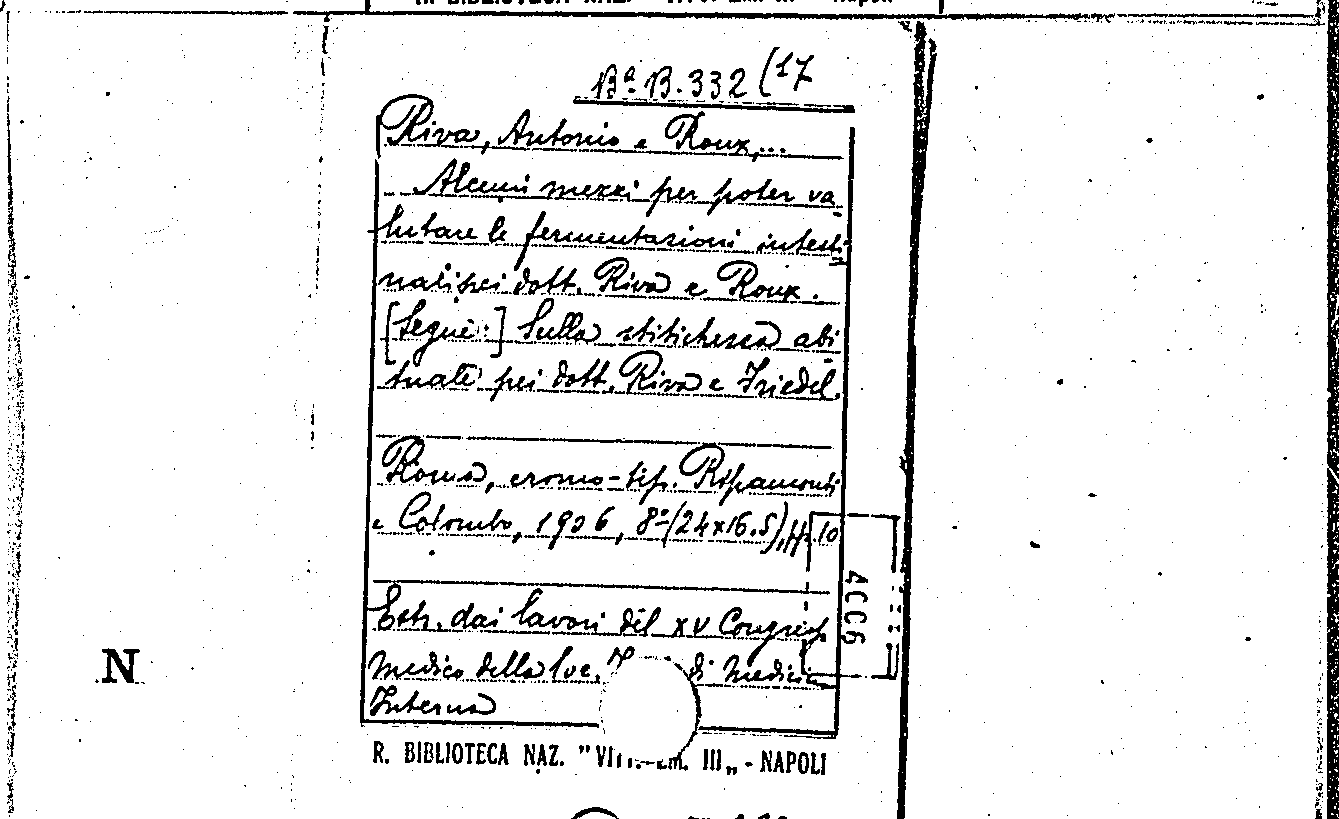 Bª. B. 332 (17
Riva, Antonio e Roux,...
Alcuni mezzi per poter va
lutare le fermentazioni intesti
nali pei dott. Riva e Roux.
[Segue:] Sulla stitichezza abi
tuale pei dott. Riva e Friedel.
Roma, cromo-tip. Ripamonti
e Colombo, 1906, 8º (24x16.5), pp. 10
Estr. dai lavori del XV Congres.
Medico della Soc. di Medicina
Interna
4CC6
N
R. BIBLIOTECA NAZ. " III„ - NAPOLI